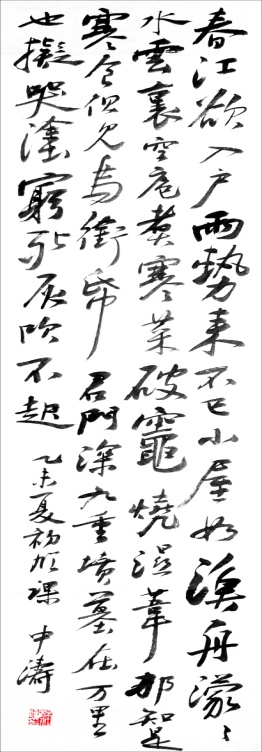 春江欲入戶雨勢来不已小屋如漁舟濛〻
水雲裏空庖煮寒菜破竈燒濕葦那知是
寒食但見烏銜帋君門深九重墳墓在万里
也擬哭塗窮死灰吹不起 乙未夏初 課 中濤